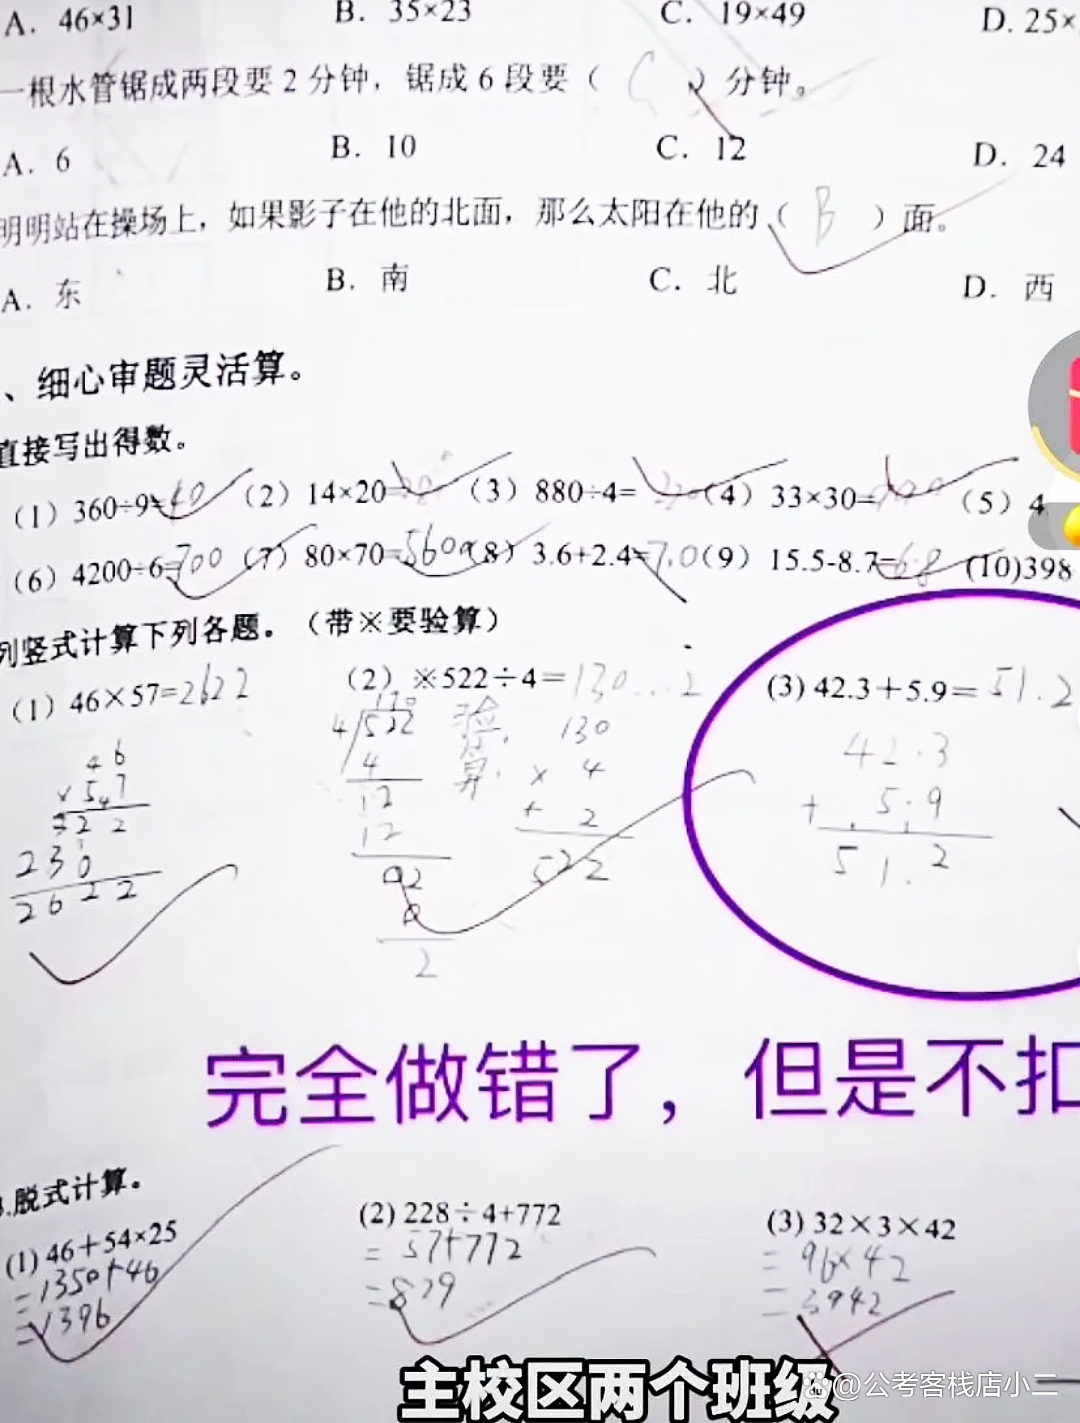 A. 46×31 B. 35×23 C. 19×49 D. 25×
一根水管锯成两段要2分钟，锯成6段要（ C ）分钟。
A. 6 B. 10 C. 12 D. 24
明明站在操场上，如果影子在他的北面，那么太阳在他的（ B ）面。
A. 东 B. 南 C. 北 D. 西
、细心审题灵活算。
直接写出得数。
（1）360÷9=40 （2）14×20= （3）880÷4= （4）33×30= （5）4
（6）4200÷6=700 （7）80×70=5600 （8）3.6+2.4=7.0 （9）15.5-8.7=6.8 (10)398
列竖式计算下列各题。（带※要验算）
（1）46×57=2622 （2）※522÷4=130...2 (3) 42.3＋5.9=51.2
46
×57
322
230
2622
130
4 522
4
12
12
02
0
2
验算.
130
× 4
+ 2
522
42.3
+ 5.9
51.2
完全做错了，但是不扣
.脱式计算。
(1) 46＋54×25 (2) 228÷4+772 (3) 32×3×42
=1350+46 = 57+772 = 96×42
=1396 =829 =3942
主校区两个班级
@公考客栈店小二